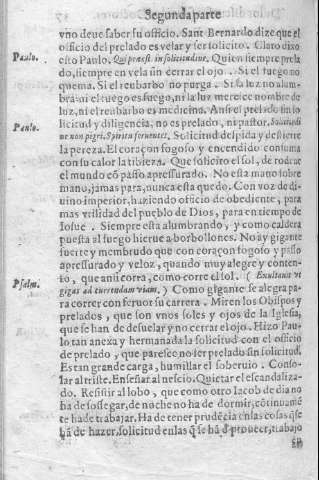 Segunda parte
vno deue saber su officio. Sant Bernardo dize que el
officio del prelado es velar y ser solicito. Claro dixo
Paulo.
esto Paulo. Qui præest in solicitudine. Quien siempre prela
do, siempre en vela sin cerrar el ojo. Si el fuego no
quema. Si el reubarbo no purga. Si la luz no alum-
bra ni el fuego es fuego, ni la luz merece nombre de
luz, ni el reubarbo es medicina. Ansi el prelado sin so
Paulo.
licitud y diligencia, no es prelado, ni pastor. Solicitudi
ne non pigri, Spiritu feruentes. Solicitud despida y destierre
la pereza. El coraçon fogoso y encendido consuma
con su calor la tibieza. Que solicito el sol, de rodear
el mundo cõ passo apressurado. No esta mano sobre
mano, jamas para, nunca esta quedo. Con voz de di
uino imperior, haziendo officio de obediente, para
mas vtilidad del pueblo de Dios, para en tiempo de
Iosue. Siempre esta alumbrando, y como caldera
puesta al fuego hierue a borbollones. No ay gigante
fuerte y membrudo que con coraçon fogoso y passo
apressurado y veloz, quando muy alegre y conten-
to, que ansi corra, como corre el sol. ( Exultauit vt
Psalm.
gigas ad currendam viam. ) Como gigante se alegra pa-
ra correr con feruor su carrera. Miren los Obispos y
prelados, que son vnos soles y ojos de la Iglesia,
que se han de desuelar y no cerrar el ojo. Hizo Pau-
lo tan anexa y hermanada la solicitud con el officio
de prelado, que paresce no ser prelado sin solicitud.
Es tan grande carga, humillar el soberuio. Conso-
lar al triste. Enseñar al nescio. Quietar el escandaliza-
do. Resistir al lobo, que como otro Iacob de dia no
ha de sossegar, de noche no ha de dormir, cõtinuamẽ
te ha de trabajar. Ha de tener prudẽcia en las cosas q̃ se
hã de hazer, solicitud en las q̃ se hã d̃ proueer, trabajo
en